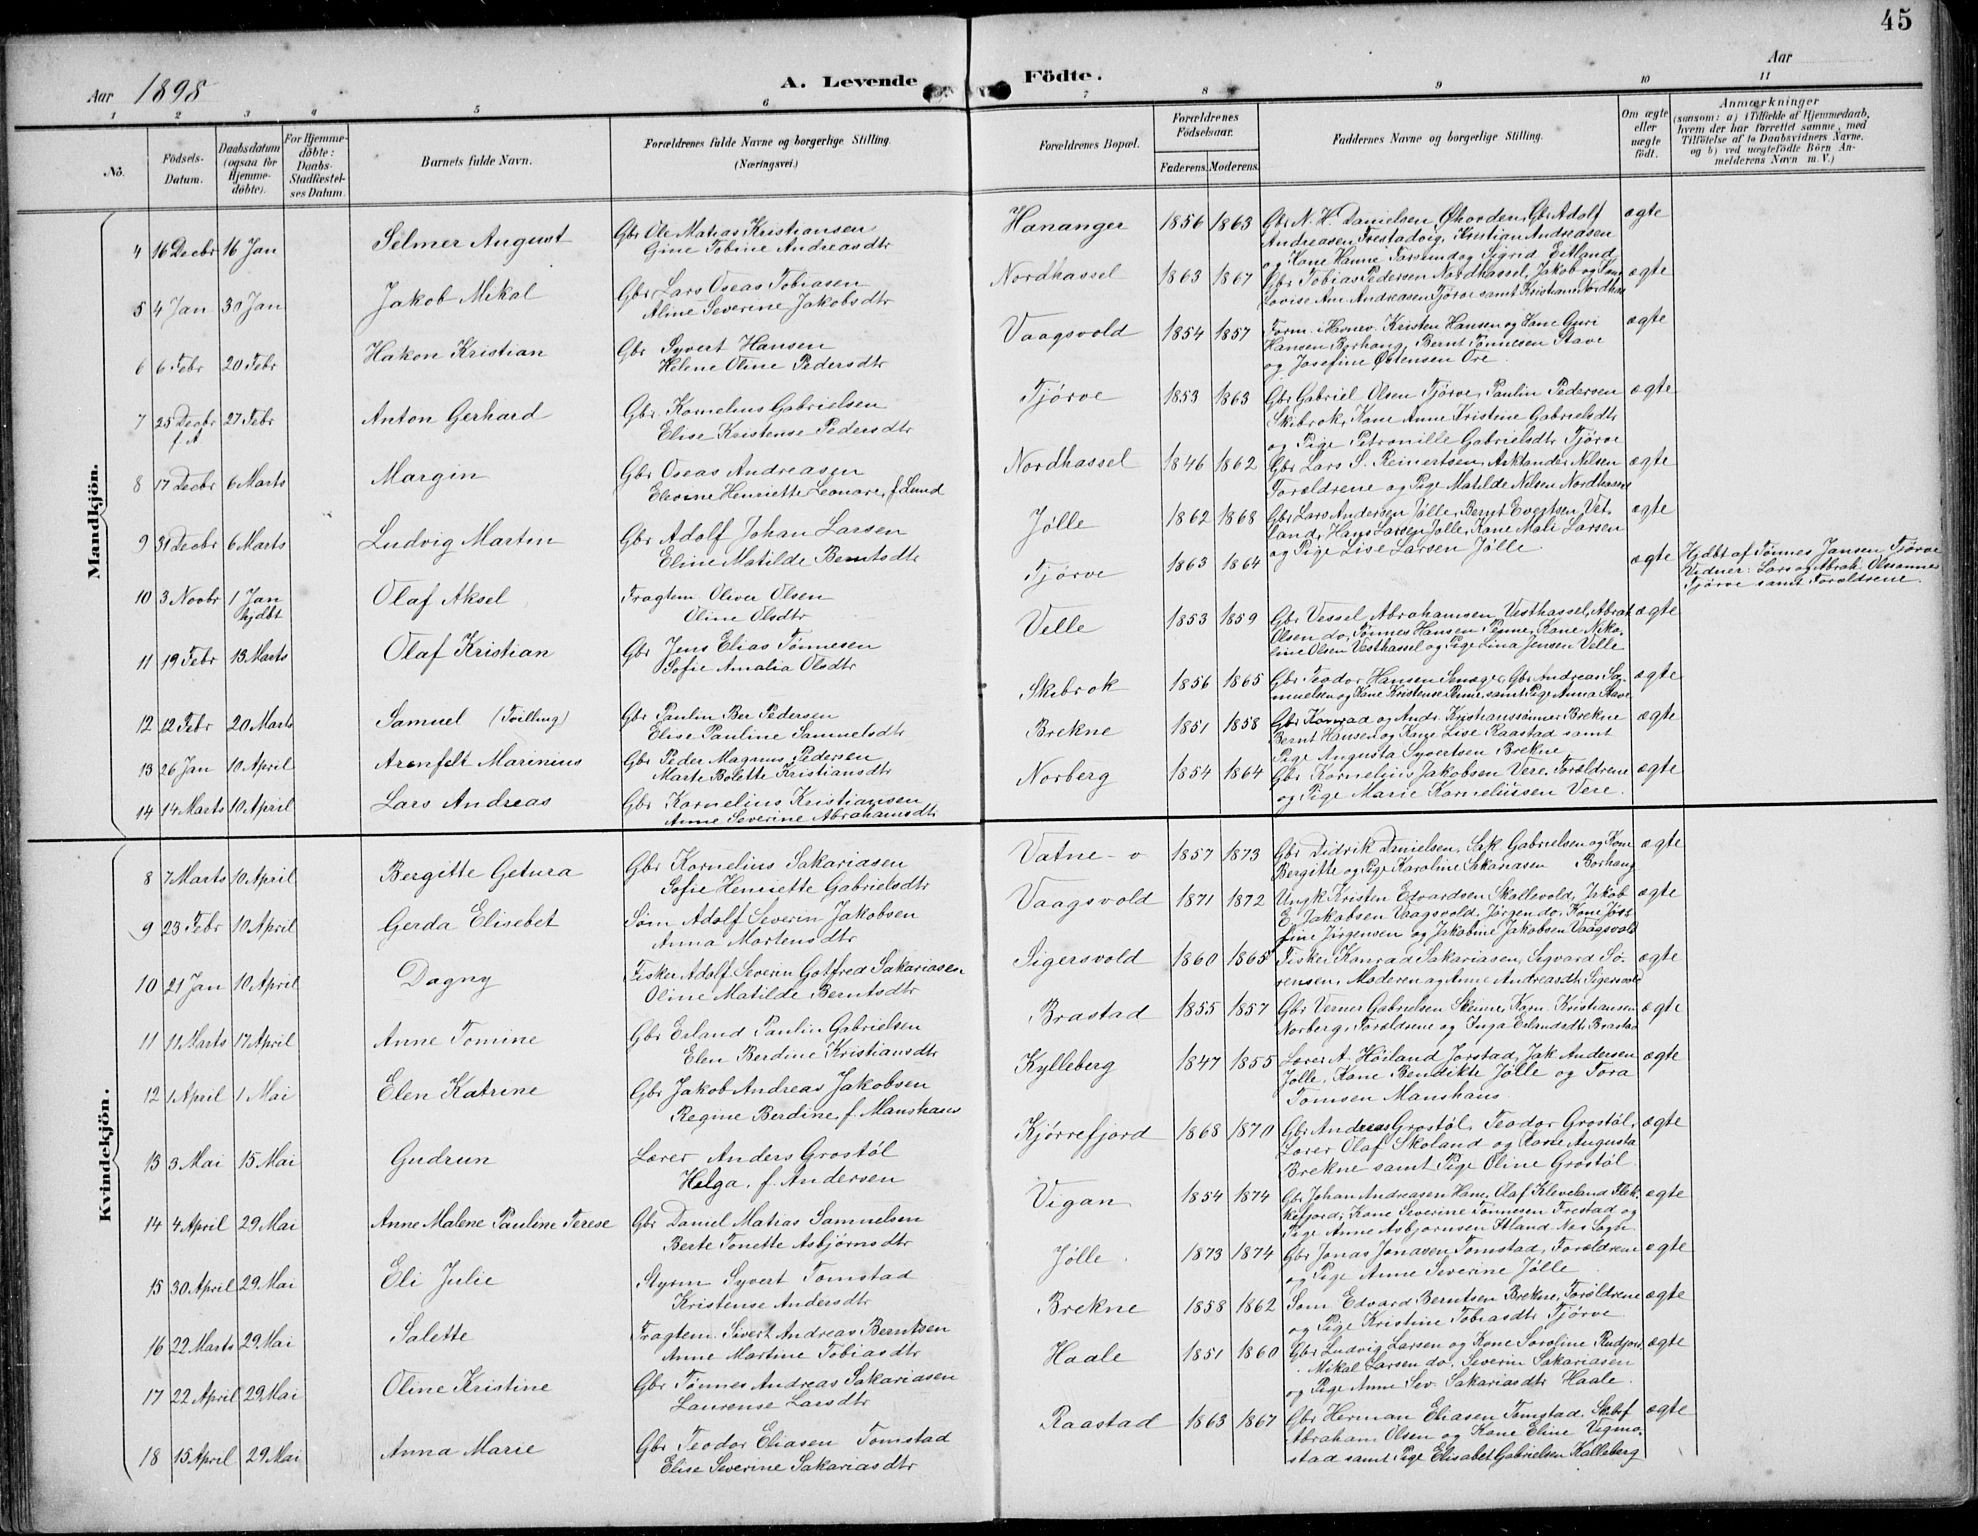 45
Aar 1898
A. Levende Födte.
Aar
1 2 3 4 5 6 7 8 9 10 11
No.
Födsels-Datum.
Daabsdatum (ogsaa for Hjemme-döbte).
For Hjemme-döbte: Daabs-Stadfæstel-ses Datum.
Barnets fulde Navn.
Forældrenes fulde Navne og borgerlige Stilling. (Næringsvei.)
Forældrenes Bopæl.
Forældrenes Födselsaar.
Faderens. Moderens.
Faddernes Navne og borgerlige Stilling.
Om ægte eller uægte födt.
Anmærkninger
(saasom: a) i Tilfælde af Hjemmedaab, hvem der har forrettet samme, med Tilföielse af to Daabsvidners Navne. og b) ved uægtefödte Börn Anmelderens Navn m. V.)
Mandkjön.
4 16 Decbr 16 Jan Selmer August Gbr Ole Matias Kristiansen
Gine Tobine Andreasdtr
Hananger 1856 1863 Gbr N. H. Danielsen Gbr Adolf ægte
Andreasen Frestadvig, Kristian Andreasen
og Kone Hanne Farsund og Sigrid Eitland
5 4 Jan 30 Jan Jakob Mikal Gbr Lars Oseas Tobiasen
Aline Severine Jakobsdtr
Nordhassel 1863 1867 Gbr Tobias Pedersen Nordhassel, Jakob og Kone ægte
Lovise Am. Andreasen Tjörve samt Kristiane Nordhas
6 6 Febr 20 Febr Hakon Kristian Gbr Syvert Hansen
Helene Oline Pedersdtr
Vaagsvold 1854 1857 Form. i Havnev. Kristen Hansen og Kone Guri ægte
Hansen Borhaug, Bernt Tönnesen Stave
og Josefine Östensen Ore
7 25 Decbr f A 27 Febr Anton Gerhard Gbr. Kornelius Gabrielsen
Elise Kristense Pedersdtr
Tjørve 1853 1863 Gbr Gabriel Olsen Tjørve, Paulin Pedersen ægte
Skibrok, Kone Anne Kristine Gabrielsdtr
og Pige Petronille Gabrielsdtr Tjörve
8 17 Decbr 6 Marts Margin Gbr Oseas Andreasen
Elevine Henriette Leonare, f. Lund
Nordhassel 1846 1862 Gbr Lars S. Reinertsen, Asklander Nilsen ægte
Forældrene og Pige Matilde Nilsen Nordhassel
9 31 Decbr 6 Marts Ludvig Martin Gbr Adolf Johan Larsen
Eline Matilde Berntsdtr
Jølle 1862 1868 Gbr Lars Andersen Jölle, Bernt Evertsen Vet- ægte
land, Hans Larsen Jölle, Kone Mali Larsen
og Pige Lise Larsen Jölle
10 3 Novbr 1 Jan hjdbt Olaf Aksel Fragtem Oliver Olsen
Oline Olsdtr
Tjørve 1863 1864 ægte Hjdbt af Tönnes Jansen Tjørve
Vidner: Lars og Abrah. Olsønner
Tjørve samt Forældrene.
11 19 Febr 13 Marts Olaf Kristian Gbr Jens Elias Tönnesen
Sofie Amalia Olsdtr
Velle 1853 1859 Gbr Vessel Abrahamsen Vesthassel, Abrah ægte
Olsen do, Tönnes Hansen Penne, Kone Niko-
line Olsen Vesthassel og Pige Lina Jensen Velle
12 12 Febr 20 Marts Samuel (Tvilling) Gbr Paulin Ber Pedersen
Elise Pauline Samuelsdtr
Skibrok 1856 1865 Gbr Teodor Hansen Gbr Andreas Sa- ægte
muelsen og Kone Kristense Penne, samt Pige Anna Stave
13 26 Jan 10 April Arenfelt Marinius Gbr Peder Magnus Pedersen
Marte Bolette Kristiansdtr
Brekne 1851 1858 Gbr Konrad og Andr. Kristianssønner Brekne ægte
Bernt Hansen og Kone Lise Raastad samt
Pige Augusta Syvertsen Brekne
14 14 Marts 10 April Lars Andreas Gbr Kornelius Kristiansen
Anne Severine Abrahamsdtr
Norberg 1854 1864 Gbr Kornelius Jakobsen Vere, Forældrene ægte
og Pige Marie Korneliussen Vere.
Kvindekjön.
8 7 Marts 10 April Bergitte Getura Gbr Kornelius Sakariasen
Sofie Henriette Gabrielsdtr
Vatne 1857 1873 Gbr Didrik Danielsen, Sak. Gabrielsen og Kone ægte
Bergitte og Pige Karoline Sakariasen Borhaug
9 23 Febr 10 April Gerda Elisebet Søm Adolf Severin Jakobsen
Anna Martensdtr
Vaagsvold 1871 1872 Ungk Kristen Edvardsen Skollevold, Jakob ægte
E. Jakobsen Vaagsvold, Jörgen do, Kone Jose
fine Jörgensen og Jakobine Jakobsen Vaagsvold
10 21 Jan 10 April Dagny Fisker Adolf Severin Gotfred Sakariasen
Oline Matilde Berntsdtr
Sigersvold 1860 1865 Fisker Konrad Sakariasen, Sigvard Sö- ægte
rensen, Moderen og Anne Andreasdtr Sigersvold
11 11 Marts 17 April Anne Tomine Gbr Erland Paulin Gabrielsen
Elen Berdine Kristiansdtr
Brastad 1855 1857 Gbr Verner Gabrielsen Skeime, Korn. Kristiansen ægte
Norberg, Forældrene og Inga Erlandsdtr Brastad
12 1 April 1 Mai Elen Katrine Gbr Jakob Andreas Jakobsen
Regine Berdine, f. Manshaus
Kylleberg 1847 1855 Lærer A Höiland Jorstad, Jak Andersen ægte
Jölle, Kone Bendikte Jölle og Tora
Tomsen Manshaus
13 3 Mai 15 Mai Gudrun Lærer Anders Grostöl
Helga, f. Andersen
Kjørrefjord 1868 1870 Gbr Andreas Grostöl, Teodor Grostöl, ægte
Lærer Olaf Skoland og Kone Augusta
Brekne samt Pige Oline Grostöl
14 4 April 29 Mai Anne Malene Pauline Terese Gbr Daniel Matias Samuelsen
Berte Tonette Asbjørnsdtr
Vigan 1854 1874 Gbr Johan Andreasen Hane, Olaf Kleveland Flek- ægte
kefjord, Kone Severine Tönnesen Frestad og
Pige Anne Asbjornsen Stland Nes Sogn
15 30 April 29 Mai Eli Julie Styrm Syvert Tomstad
Kristense Andersdtr
Jølle. 1873 1874 Gbr Jonas Jonasen Tomstad, Forældrene ægte
og Pige Anne Severine Jölle
16 22 Marts 29 Mai Salette Fragtem Sivert Andreas Berntsen
Anne Martine Tobiasdtr
Brekne 1858 1862 Søm Edvard Berntsen Brekne, Forældrene ægte
og Pige Kristine Tobiasdtr Tjørve
17 22 April 29 Mai Oline Kristine Gbr Tönnes Andreas Sakariasen
Laurense Larsdtr
Haale 1851 1860 Gbr Ludvig Larsen og Kone Soroline Rudjord ægte
Mikal Larsen do, Severin Sakariasen
og Pige Anne Sev. Sakariasdtr Haale.
18 15 April 29 Mai Anna Marie Gbr Teodor Eliasen Tomstad
Elise Severine Sakariasdtr
Raastad 1863 1867 Gbr Herman Eliasen Tomstad, Skibsf ægte
Abraham Olsen og Kone Eline Vigmo-
stad samt Pige Elisabet Gabrielsen Kalleberg